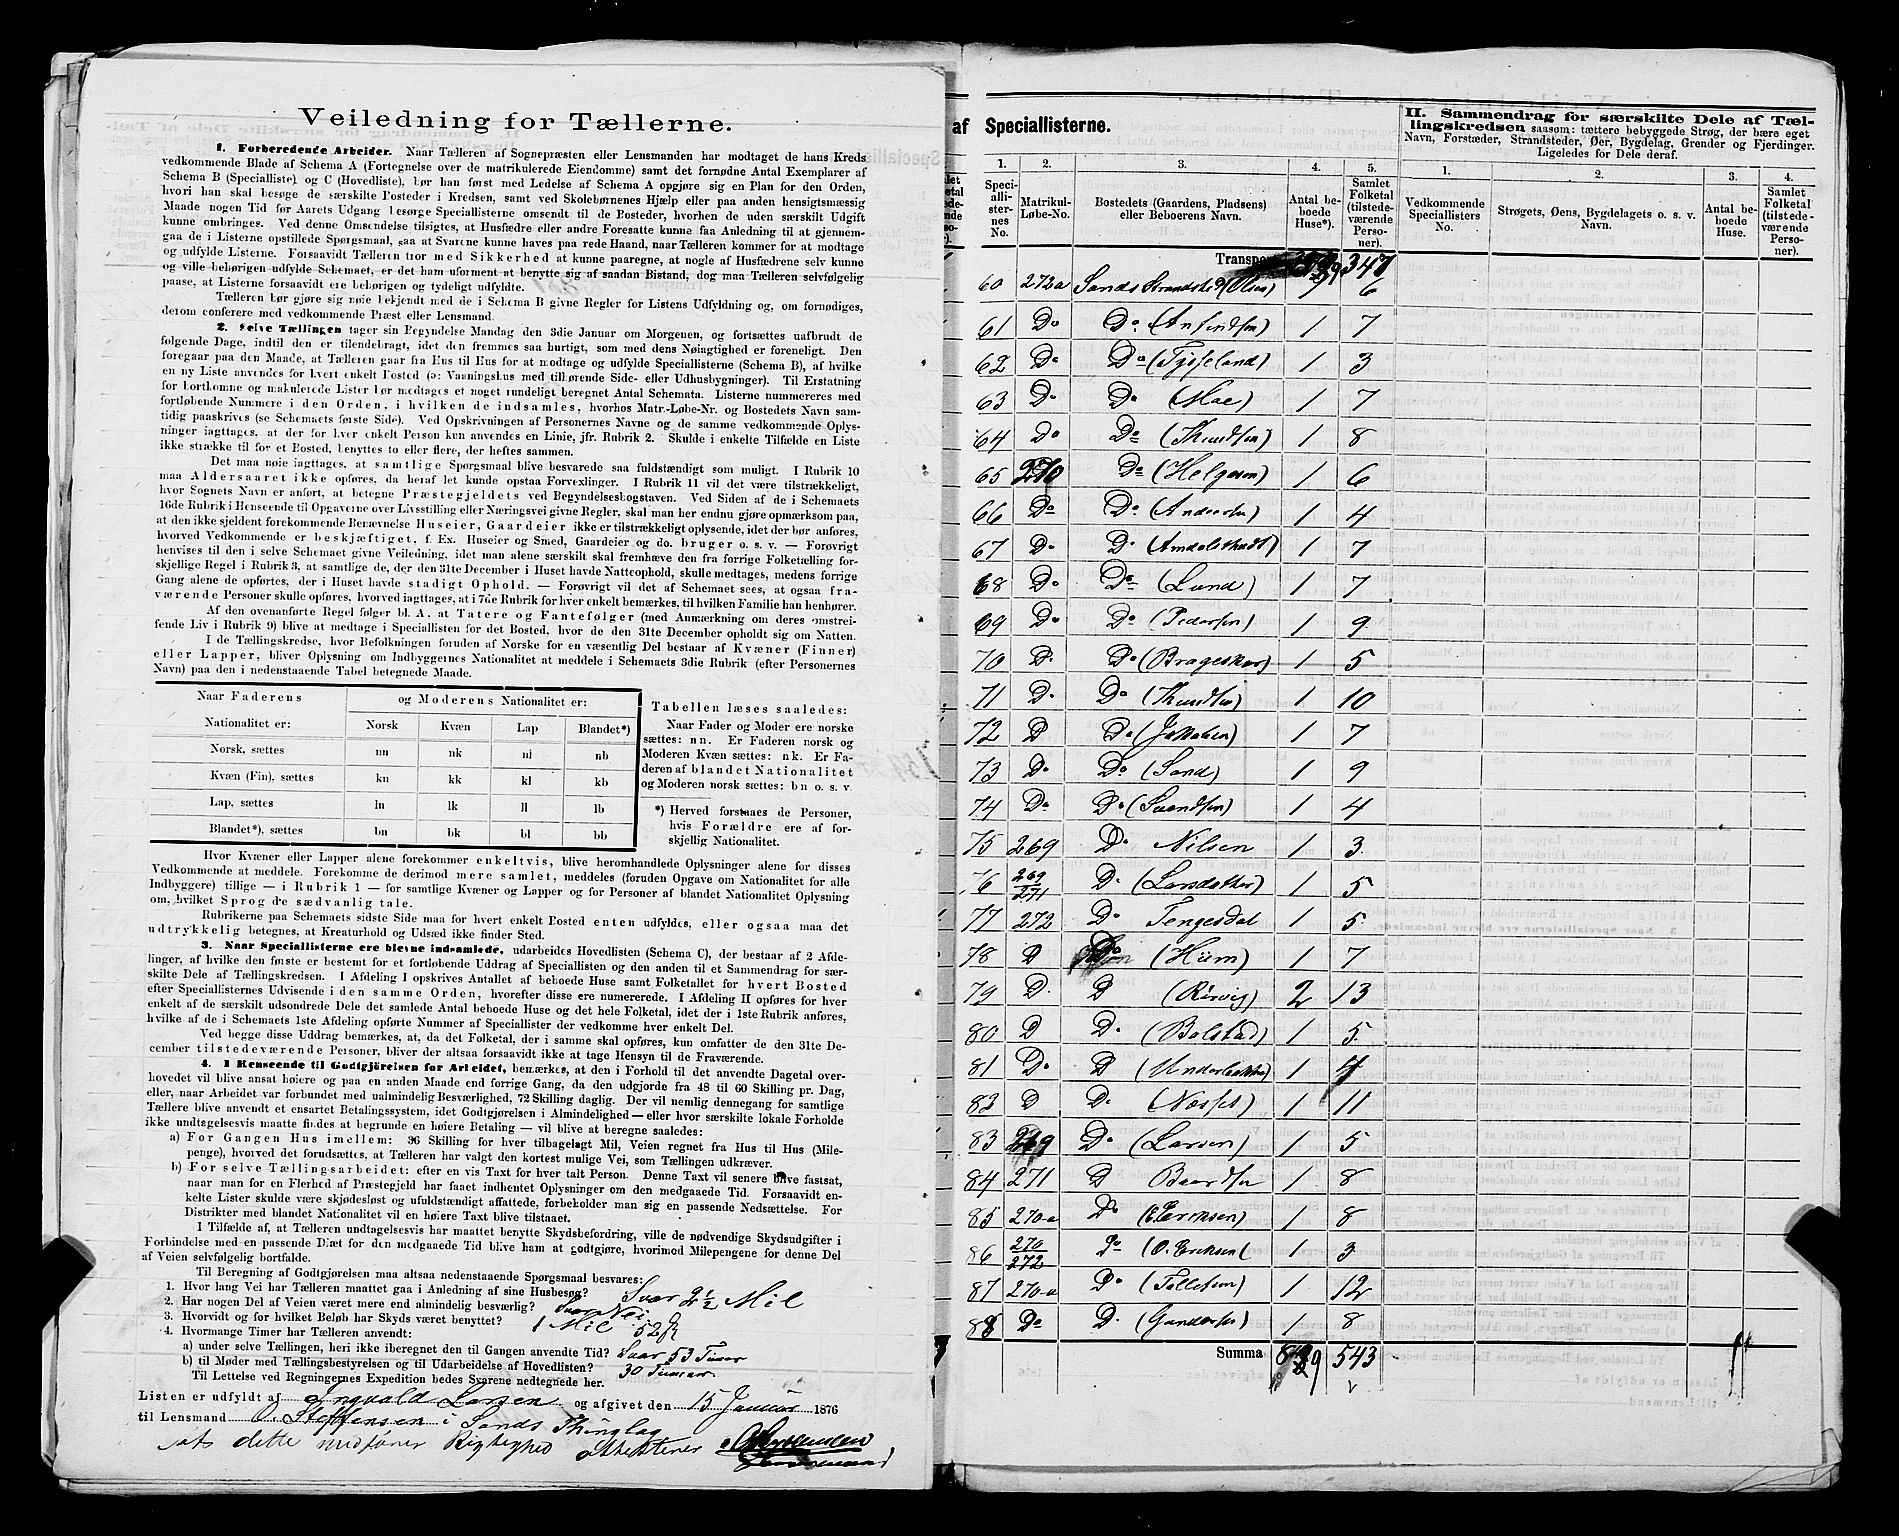 Veiledning for Tællerne.
1. Forberedende Arbeider. Naar Tælleren af Sognepræsten eller Lensmanden har modtaget de hans Kreds
vedkommende Blade af Schema A (Fortegnelse over de matrikulerede Eiendomme) samt det fornødne Antal Exemplarer af
Schema B (Specialliste) og C (Hovedliste), bør han først med Ledelse af Schema A opgjøre sig en Plan for den Orden,
hvori han skal besøge de særskilte Posteder i Kredsen, samt ved Skolebørnenes Hjælp eller paa anden hensigtsmæssig
Maade nogen Tid før Aarets Udgang besørge Speciallisterne omsendt til de Posteder, hvorhen de uden særskilt Udgift
kunne ombringes. Ved denne Omsendelse tilsigtes, at Husfædre eller andre Foresatte kunne faa Anledning til at gjennem-
gaa de i Listerne opstillede Spørgsmaal, saa at Svarene kunne haves paa rede Haand, naar Tælleren kommer for at modtage
og udfylde Listerne. Forsaavidt Tælleren tror med Sikkerhed at kunne paaregne, at nogle af Husfædrene selv kunne
og ville behørigen udfylde Schemaet, er det ham uforment at benytte sig af saadan Bistand, dog maa Tælleren selvfølgelig
paase, at Listerne forsaavidt ere behørigen og tydeligt udfyldte.
Tælleren bør gjøre sig nøie bekjendt med de i Schema B givne Regler for Listens Udfyldning og, om fornødiges,
derom conferere med vedkommende Præst eller Lensmand.
2. Selve Tællingen tager sin Begyndelse Mandag den 3die Januar om Morgenen, og fortsættes uafbrudt de
følgende Dage, indtil den er tilendebragt, idet den fremmes saa hurtigt, som med dens Nøiagtighed er foreneligt. Den
foregaar paa den Maade, at Tælleren gaar fra Hus til Hus for at modtage og udfylde Speciallisterne (Schema B), af hvilke
en ny Liste anvendes for hvert enkelt Bosted (ɔ: Vaaningshus med tilhørende Side- eller Udhusbygninger). Til Erstatning
for bortkomne og makulerede Lister bør medtages et noget rundeligt beregnet Antal Schemata. Listerne nummereres med
fortløbende Nummere i den Orden, i hvilken de indsamles, hvorhos Matr.-Løbe-Nr. og Bostedets Navn sam-
tidig paaskrives (se Schemaets første Side). Ved Opskrivningen af Personernes Navne og de samme vedkommende Oplys-
ninger iagttages, at der for hver enkelt Person kun anvendes en Linie, jfr. Rubrik 2. Skulde i enkelte Tilfælde en Liste
ikke strække til for et Bosted, benyttes to eller flere, der heftes sammen.
Det maa nøie iagttages, at samtlige Spørgsmaal blive besvarede saa fuldstændigt som muligt. I Rubrik 10
maa Aldersaaret ikke opføres, da heraf let kunde opstaa Forvexlinger. I Rubrik 11 vil det være tilstrækkeligt,
hvor Sognets Navn er anført, at betegne Præstegjeldets ved Begyndelsesbogstaven. Ved Siden af de i Schemaets
16de Rubrik i Henseende til Opgaverne over Livsstilling eller Næringsvei givne Regler, skal man her endnu gjøre opmærksom paa,
at den ikke sjeldent forekommende Benævnelse Huseier, Gaardeier ikke er tilstrækkeligt oplysende, idet der bør anføres,
hvorved Vedkommende er beskjæftiget, f. Ex. Huseier og Smed, Gaardeier og do. bruger o. s. v. — Forøvrigt
henvises til den i selve Schemaet givne Veiledning, idet man alene særskilt skal fremhæve den fra forrige Folketælling for-
skjellige Regel i Rubrik 3, at samtlige de, der den 31te December i Huset havde Natteophold, skulle medtages, medens forrige
Gang alene de opførtes, der i Huset havde stadigt Ophold. — Forøvrigt vil det af Schemaet sees, at ogsaa fra-
værende Personer skulle opføres, hvorved iagttages, at i 7de Rubrik for hver enkelt bemærkes, til hvilken Familie han henhører.
Af den ovenanførte Regel følger bl. A. at Tatere og Fantefølger (med Anmærkning om deres omstrei-
fende Liv i Rubrik 9) blive at medtage i Speciallisten for det Bosted, hvor de den 31te December opholdt sig om Natten.
I de Tællingskredse, hvor Befolkningen foruden af Norske for en væsentlig Del bestaar af Kvæner (Finner)
eller Lapper, bliver Oplysning om Indbyggernes Nationalitet at meddele i Schemaets 3die Rubrik (efter Personernes
Navn) paa den i nedenstaaende Tabel betegnede Maade.
Naar Faderens Nationalitet er: | og Moderens Nationalitet er:
Norsk | Kvæn | Lap | Blandet*)
Norsk, sættes | nn | nk | nl | nb
Kvæn (Fin), sættes | kn | kk | kl | kb
Lap, sættes | ln | lk | ll | lb
Blandet*), sættes | bn | bk | bl | bb
Tabellen læses saaledes:
Naar Fader og Moder ere norske
sættes: nn. Er Faderen norsk og
Moderen Kvæn sættes: nk. Er Fa-
deren af blandet Nationalitet
og Moderen norsk sættes: bn o. s. v.
*) Herved forstaaes de Personer,
hvis Forældre ere af for-
skjellig Nationalitet.
Hvor Kvæner eller Lapper alene forekommer enkeltvis, blive heromhandlede Oplysninger alene for disses
Vedkommende at meddele. Forekomme de derimod mere samlet, meddeles (foruden Opgave om Nationalitet for alle
Indbyggere) tillige — i Rubrik 1 — for samtlige Kvæner og Lapper og for Personer af blandet Nationalitet Oplysning
om, hvilket Sprog de sædvanlig tale.
Rubrikerne paa Schemaets sidste Side maa for hvert enkelt Posted enten udfyldes, eller ogsaa maa det
udtrykkelig betegnes, at Kreaturhold og Udsæd ikke finder Sted.
3. Naar Speciallisterne ere blevne indsamlede, udarbeides Hovedlisten (Schema C), der bestaar af 2 Afde-
linger, af hvilke den første er bestemt for et fortløbende Uddrag af Speciallisten og den anden til et Sammendrag for sær-
skilte Dele af Tællingskredsen. I Afdeling I opskrives Antallet af beboede Huse samt Folketallet for hvert Bosted
efter Speciallisternes Udvisende i den samme Orden, hvorefter disse ere numererede. I Afdeling II opføres for hver
enkelt af de særskilt udsondrede Dele det samlede Antal beboede Huse og det hele Folketal, idet der i 1ste Rubrik anføres,
hvilke af de i Schemaets 1ste Afdeling opførte Nummer af Speciallister der vedkomme hver enkelt Del.
Ved begge disse Uddrag bemærkes, at, da det Folketal, der i samme skal opføres, kun omfatter de den 31te De-
cember tilstedeværende Personer, bliver der altsaa forsaavidt ikke at tage Hensyn til de Fraværende.
4. I Henseende til Godtgjörelsen for Arbeidet, bemærkes, at den i Forhold til det anvendte Dagetal over-
hovedet vil blive ansat høiere og paa en anden Maade end forrige Gang, da den udgjorde fra 48 til 60 Skilling pr. Dag,
eller, naar Arbeidet var forbundet med ualmindelig Besværlighed, 72 Skilling daglig. Der vil nemlig dennegang for samtlige
Tællere blive anvendt et ensartet Betalingssystem, idet Godtgjörelsen i Almindelighed — eller hvor særskilte lokale Forholde
ikke undtagelsesvis maatte findes at begrunde en høiere Betaling — vil blive at beregne saaledes:
a) For Gangen Hus imellem: 96 Skilling for hver tilbagelagt Mil, Veien regnet fra Hus til Hus (Mile-
penge), hvorved det forudsættes, at Tælleren har valgt den kortest mulige Vei, som Tællingen udkræver.
b) For selve Tællingsarbeidet: efter en vis Taxt for hver talt Person. Denne Taxt vil senere blive fastsat,
naar man for en Flerhed af Præstegjeld har faaet indhentet Oplysninger om den medgaaede Tid. Forsaavidt en-
kelte Lister skulde være skjødesløst og ufuldstændigt affattede, forbeholder man sig en passende Nedsættelse. For
Distrikter med blandet Nationalitet vil en høiere Taxt blive tilstaaet.
I Tilfælde af, at Tælleren undtagelsesvis har maattet benytte Skydsbefordring, ville de nødvendige Skydsudgifter i
Forbindelse med en passende Diæt for den medgaaede Tid blive ham at godtgjøre, hvorimod Milepengene for denne Del
af Veien selvfølgelig bortfalde.
Til Beregning af Godtgjørelsen maa altsaa nedenstaaende Spørgsmaal besvares:
1. Hvor lang Vei har Tælleren maattet gaa i Anledning af sine Husbesøg? Svar 2 1/2 Mil
2. Har nogen Del af Veien været mere end almindelig besværlig? Svar Nei
3. Hvorvidt og for hvilket Beløb har Skyds været benyttet? 1 Mil 52
4. Hvormange Timer har Tælleren anvendt:
a) under selve Tællingen, heri ikke iberegnet den til Gangen anvendte Tid? Svar 53 Timer
b) til Møder med Tællingsbestyrelsen og til Udarbeidelse af Hovedlisten? 30 Timer
Til Lettelse ved Regningernes Expedition bedes Svarene nedtegnede her.
Listen er udfyldt af Ingvald Larsen og afgivet den 15 Januar 1876
til Lensmand O. Steffensen i Sands Thinglag
at dette medfører Rigtighed attesterer
af Speciallisterne.
1. | 2. | 3. | 4. | 5.
Speci-alli-ster-nes No. | Matrikul-Løbe-No. | Bostedets (Gaardens, Pladsens) eller Beboerens Navn. | Antal be-boede Huse*). | Samlet Folketal (tilstede-værende Perso-ner).
Transport 347
60 | 272a | Sands Strandsted (Olsen) | 1 | 6
61 | Do | Do (Anfindsen) | 1 | 7
62 | Do | Do (Tysseland) | 1 | 3
63 | Do | Do (Moe) | 1 | 7
64 | Do | Do (Knudsen) | 1 | 8
65 | 270 | Do (Helgesen) | 1 | 6
66 | Do | Do (Andersen) | 1 | 4
67 | Do | Do | 1 | 7
68 | Do | Do (Lund) | 1 | 7
69 | Do | Do (Pedersen) | 1 | 9
70 | D. | Do | 1 | 5
71 | Do | Do (Knudsen) | 1 | 10
72 | D | Do (Jakobsen) | 1 | 7
73 | Do | Do (Sand) | 1 | 9
74 | Do | Do (Svendsen) | 1 | 4
75 | 269 | Do Nilsen | 1 | 3.
76 | 269/271 | D. (Larsdatter) | 1 | 5
77 | 272 | Do Tengesdal | 1 | 5.
78 | D | Do (Hiim) | 1 | 7
79 | D. | D (Rörvig) | 2 | 13
80 | D | D. (Bolstad) | 1 | 5.
81 | Do | D (Underbakke) | 1 | 4
82 | D | D. | 1 | 11
83 | 269 | Do (Larsen) | 1 | 5
84 | 271 | D Baardsen | 1 | 8
85 | 270a | Do (E Eriksen) | 1 | 8
86 | 270/272 | Do (O. Eriksen( | 1 | 3
87 | 270a | Do (Tolletsen) | 1 | 12
88 | Do | D. (Gundersen) | 1 | 8
Summa | 543
II. Sammendrag for særskilte Dele af Tæl-
lingskredsen saasom: tættere bebyggede Strøg, der bære eget
Navn, Forstæder, Strandsteder, Øer, Bygdelag, Grender og Fjerdinger.
Ligeledes for Dele deraf.
1. | 2. | 3. | 4.
Vedkommende Speciallisters No. | Strøgets, Øens, Bygdelagets o. s. v. Navn. | Antal be-boede Huse. | Samlet Folketal (tilstede-værende Perso-ner).